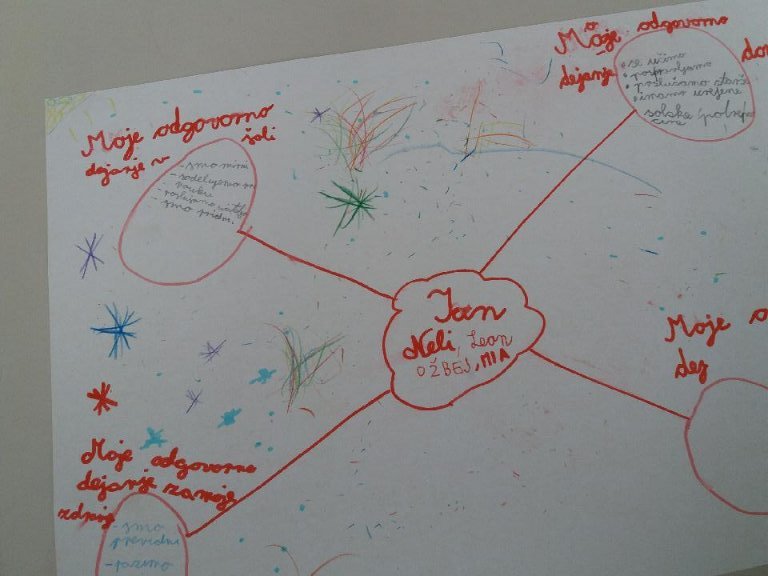 Moje odgovorno
dejanje v šoli
- smo mirni
- sodelujemo pri
pouku
- poslušamo
- smo pridni
Moje odgovorno
dejanje
• se učimo
• pospravljamo
• poslušamo starše
• imamo urejene
šolske potrebščine
Ian
Neli, Leon
OŽBEJ, MIA
Moje o
dej
Moje odgovorno
dejanje za moje
zdravje
- smo
previdni
- pazimo